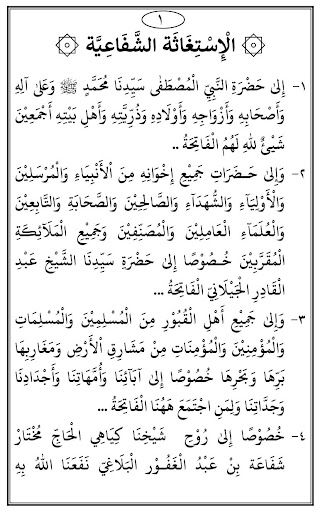 ١
الْإِسْتِغَاثَة الشَّفَاعِيَّة
١- إِلىٰ حَضْرَةِ النَّبِيِّ الْمُصْطَفٰى سَيِّدِنَا مُحَمَّدٍ ﷺ وَعَلىٰ آلِهِ
وَأَصْحَابِهِ وَأَزْوَاجِهِ وَأَوْلَادِهِ وَذُرِّيَّتِهِ وَأَهْلِ بَيْتِهِ أَجْمَعِيْنَ
شَيْئٌ لِلّٰهِ لَهُمُ الْفَاتِحَةُ ..
٢- وَإِلىٰ حَضَرَاتِ جَمِيْعِ إِخْوَانِهِ مِنَ الْأَنْبِيَاءِ وَالْمُرْسَلِيْنَ
وَالْأَوْلِيَآءِ وَالشُّهَدَآءِ وَالصَّالِحِيْنَ وَالصَّحَابَةِ وَالتَّابِعِيْنَ
وَالْعُلَمَآءِ الْعَامِلِيْنَ وَالْمُصَنِّفِيْنَ وَجَمِيْعِ الْمَلَآئِكَةِ
الْمُقَرَّبِيْنَ خُصُوْصًا إِلىٰ حَضْرَةِ سَيِّدِنَا الشَّيْخِ عَبْدِ
الْقَادِرِ الْجَيْلَانِيِّ الْفَاتِحَةُ ...
٣- وَإِلىٰ جَمِيْعِ أَهْلِ الْقُبُوْرِ مِنَ الْمُسْلِمِيْنَ وَالْمُسْلِمَاتِ
وَالْمُؤْمِنِيْنَ وَالْمُؤْمِنَاتِ مِنْ مَشَارِقِ الْأَرْضِ وَمَغَارِبِهَا
بَرِّهَا وَبَحْرِهَا خُصُوْصًا إِلىٰ آبَآئِنَا وَأُمَّهَاتِنَا وَأَجْدَادِنَا
وَجَدَّاتِنَا وَلِمَنِ اجْتَمَعَ هٰهُنَا الْفَاتِحَةُ ...
٤- خُصُوْصًا إِلىٰ رُوْحِ شَيْخِنَا كِيَاهِي الْحَاجّ مُخْتَارْ
شَفَاعَة بِنْ عَبْدُ الْغَفُوْر الْبَلَاغِيّ نَفَعَنَا اللّٰهُ بِهِ